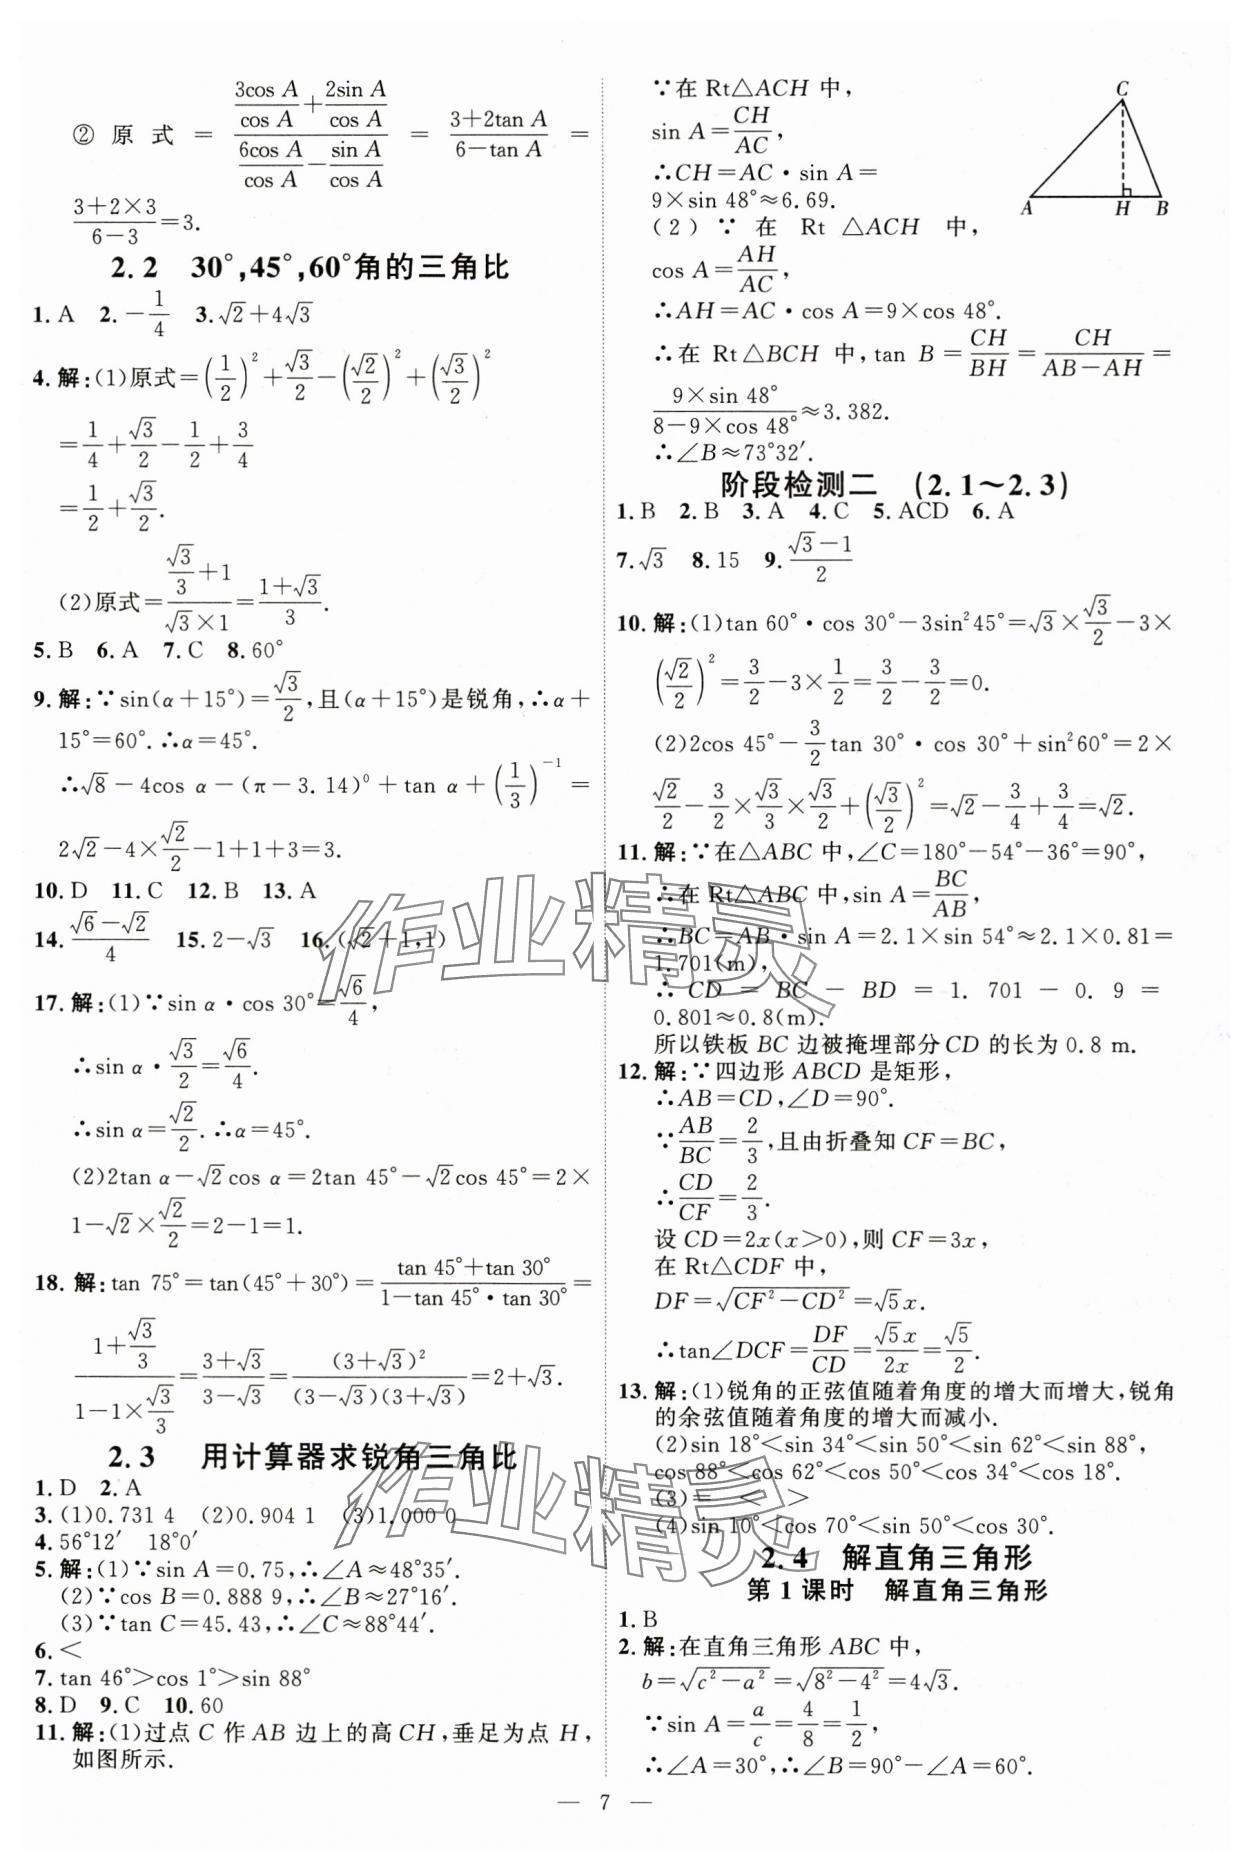 ② 原式 = (3cos A/cos A + 2sin A/cos A)/(6cos A/cos A − sin A/cos A) = (3+2tan A)/(6−tan A) =
(3+2×3)/(6−3)=3.
2.2 30°,45°,60°角的三角比
1. A 2. −1/4 3. √2+4√3
4. 解:(1)原式=(1/2)²+√3/2−(√2/2)²+(√3/2)²
=1/4+√3/2−1/2+3/4
=1/2+√3/2.
(2)原式=(√3/3+1)/(√3×1)=(1+√3)/3.
5. B 6. A 7. C 8. 60°
9. 解:∵sin(α+15°)=√3/2,且(α+15°)是锐角,∴α+
15°=60°.∴α=45°.
∴√8−4cos α−(π−3.14)⁰+tan α+(1/3)⁻¹=
2√2−4×√2/2−1+1+3=3.
10. D 11. C 12. B 13. A
14. (√6−√2)/4 15. 2−√3 16. (√2+1,1)
17. 解:(1)∵sin α·cos 30°=√6/4,
∴sin α·√3/2=√6/4.
∴sin α=√2/2.∴α=45°.
(2)2tan α−√2cos α=2tan 45°−√2cos 45°=2×
1−√2×√2/2=2−1=1.
18. 解:tan 75°=tan(45°+30°)=(tan 45°+tan 30°)/(1−tan 45°·tan 30°)=
(1+√3/3)/(1−1×√3/3)=(3+√3)/(3−√3)=(3+√3)²/((3−√3)(3+√3))=2+√3.
2.3 用计算器求锐角三角比
1. D 2. A
3. (1)0.731 4 (2)0.904 1 (3)1.000 0
4. 56°12′ 18°0′
5. 解:(1)∵sin A=0.75,∴∠A≈48°35′.
(2)∵cos B=0.888 9,∴∠B≈27°16′.
(3)∵tan C=45.43,∴∠C≈88°44′.
6. <
7. tan 46°>cos 1°>sin 88°
8. D 9. C 10. 60
11. 解:(1)过点 C 作 AB 边上的高 CH,垂足为点 H,
如图所示.
∵在 Rt△ACH 中,
sin A=CH/AC,
∴CH=AC·sin A=
9×sin 48°≈6.69.
(2)∵在 Rt △ACH 中,
cos A=AH/AC,
∴AH=AC·cos A=9×cos 48°.
∴在 Rt△BCH 中,tan B=CH/BH=CH/(AB−AH)=
(9×sin 48°)/(8−9×cos 48°)≈3.382.
∴∠B≈73°32′.
C
A H B
阶段检测二 (2.1～2.3)
1. B 2. B 3. A 4. C 5. ACD 6. A
7. √3 8. 15 9. (√3−1)/2
10. 解:(1)tan 60°·cos 30°−3sin²45°=√3×√3/2−3×
(√2/2)²=3/2−3×1/2=3/2−3/2=0.
(2)2cos 45°−3/2tan 30°·cos 30°+sin²60°=2×
√2/2−3/2×√3/3×√3/2+(√3/2)²=√2−3/4+3/4=√2.
11. 解:∵在△ABC 中,∠C=180°−54°−36°=90°,
∴在 Rt△ABC 中,sin A=BC/AB,
∴BC=AB·sin A=2.1×sin 54°≈2.1×0.81=
1.701(m),
∴CD = BC − BD = 1.701 − 0.9 =
0.801≈0.8(m).
所以铁板 BC 边被掩埋部分 CD 的长为 0.8 m.
12. 解:∵四边形 ABCD 是矩形,
∴AB=CD,∠D=90°.
∵AB/BC=2/3,且由折叠知 CF=BC,
∴CD/CF=2/3.
设 CD=2x(x>0),则 CF=3x,
在 Rt△CDF 中,
DF=√(CF²−CD²)=√5x.
∴tan∠DCF=DF/CD=√5x/2x=√5/2.
13. 解:(1)锐角的正弦值随着角度的增大而增大,锐角
的余弦值随着角度的增大而减小.
(2)sin 18°<sin 34°<sin 50°<sin 62°<sin 88°,
cos 88°<cos 62°<cos 50°<cos 34°<cos 18°.
(3)= < >
(4)sin 10°<cos 70°<sin 50°<cos 30°.
2.4 解直角三角形
第1课时 解直角三角形
1. B
2. 解:在直角三角形 ABC 中,
b=√(c²−a²)=√(8²−4²)=4√3.
∵sin A=a/c=4/8=1/2,
∴∠A=30°,∴∠B=90°−∠A=60°.
作业精灵
作业精灵
— 7 —